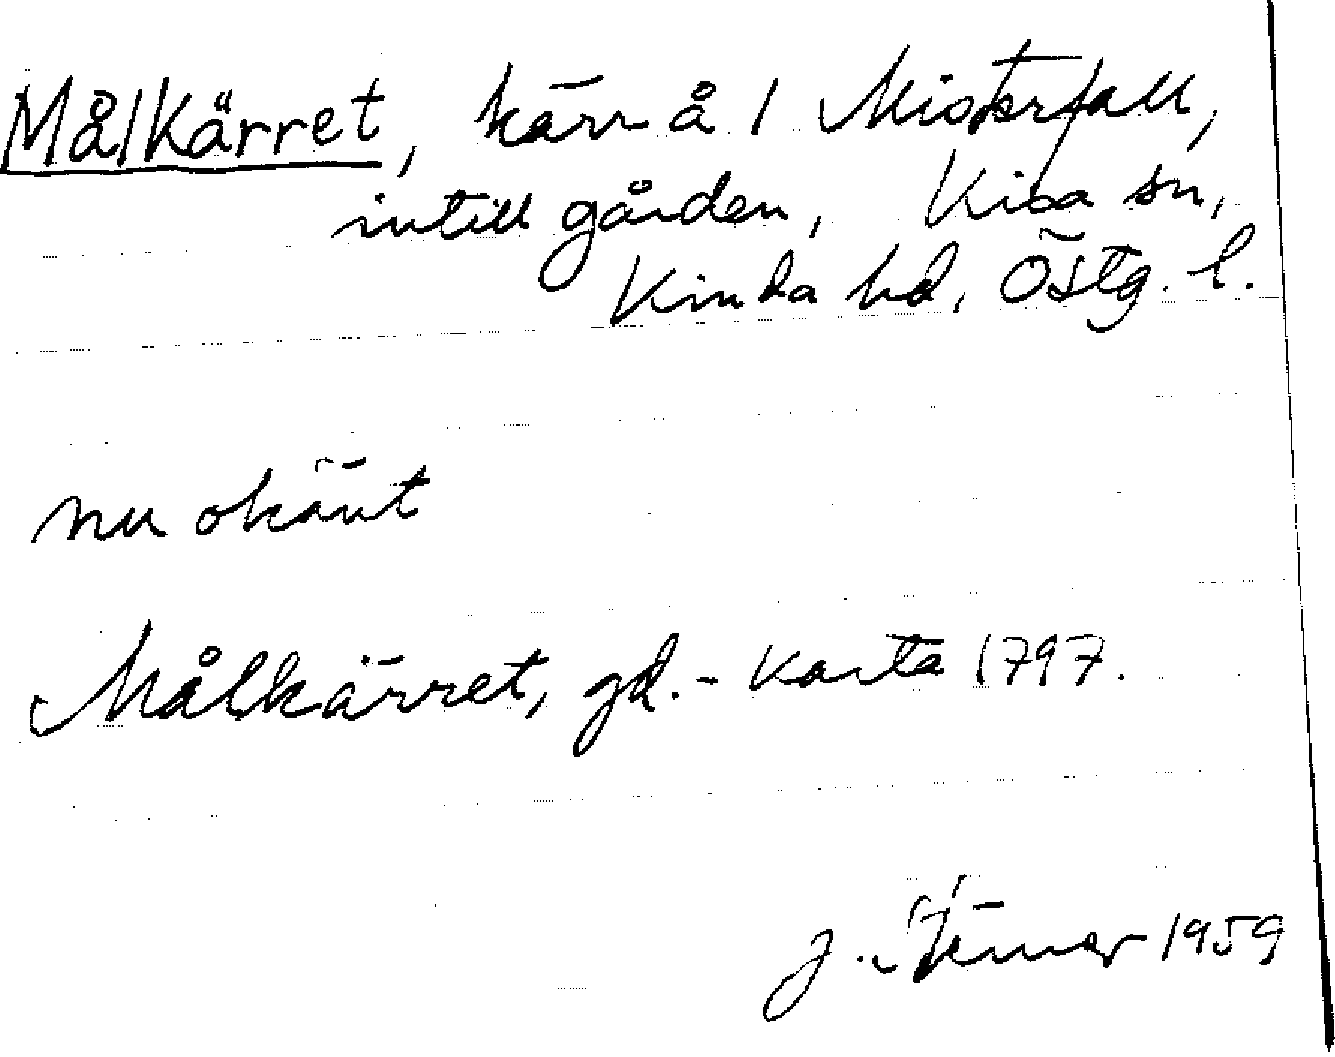 Målkärret, kärr å 1 Misterfall,
intill gården, Kisa sn,
Kinda hd, Östg. l.
nu okänt
Målkärret, gd. - Karta 1797.
J. 1959